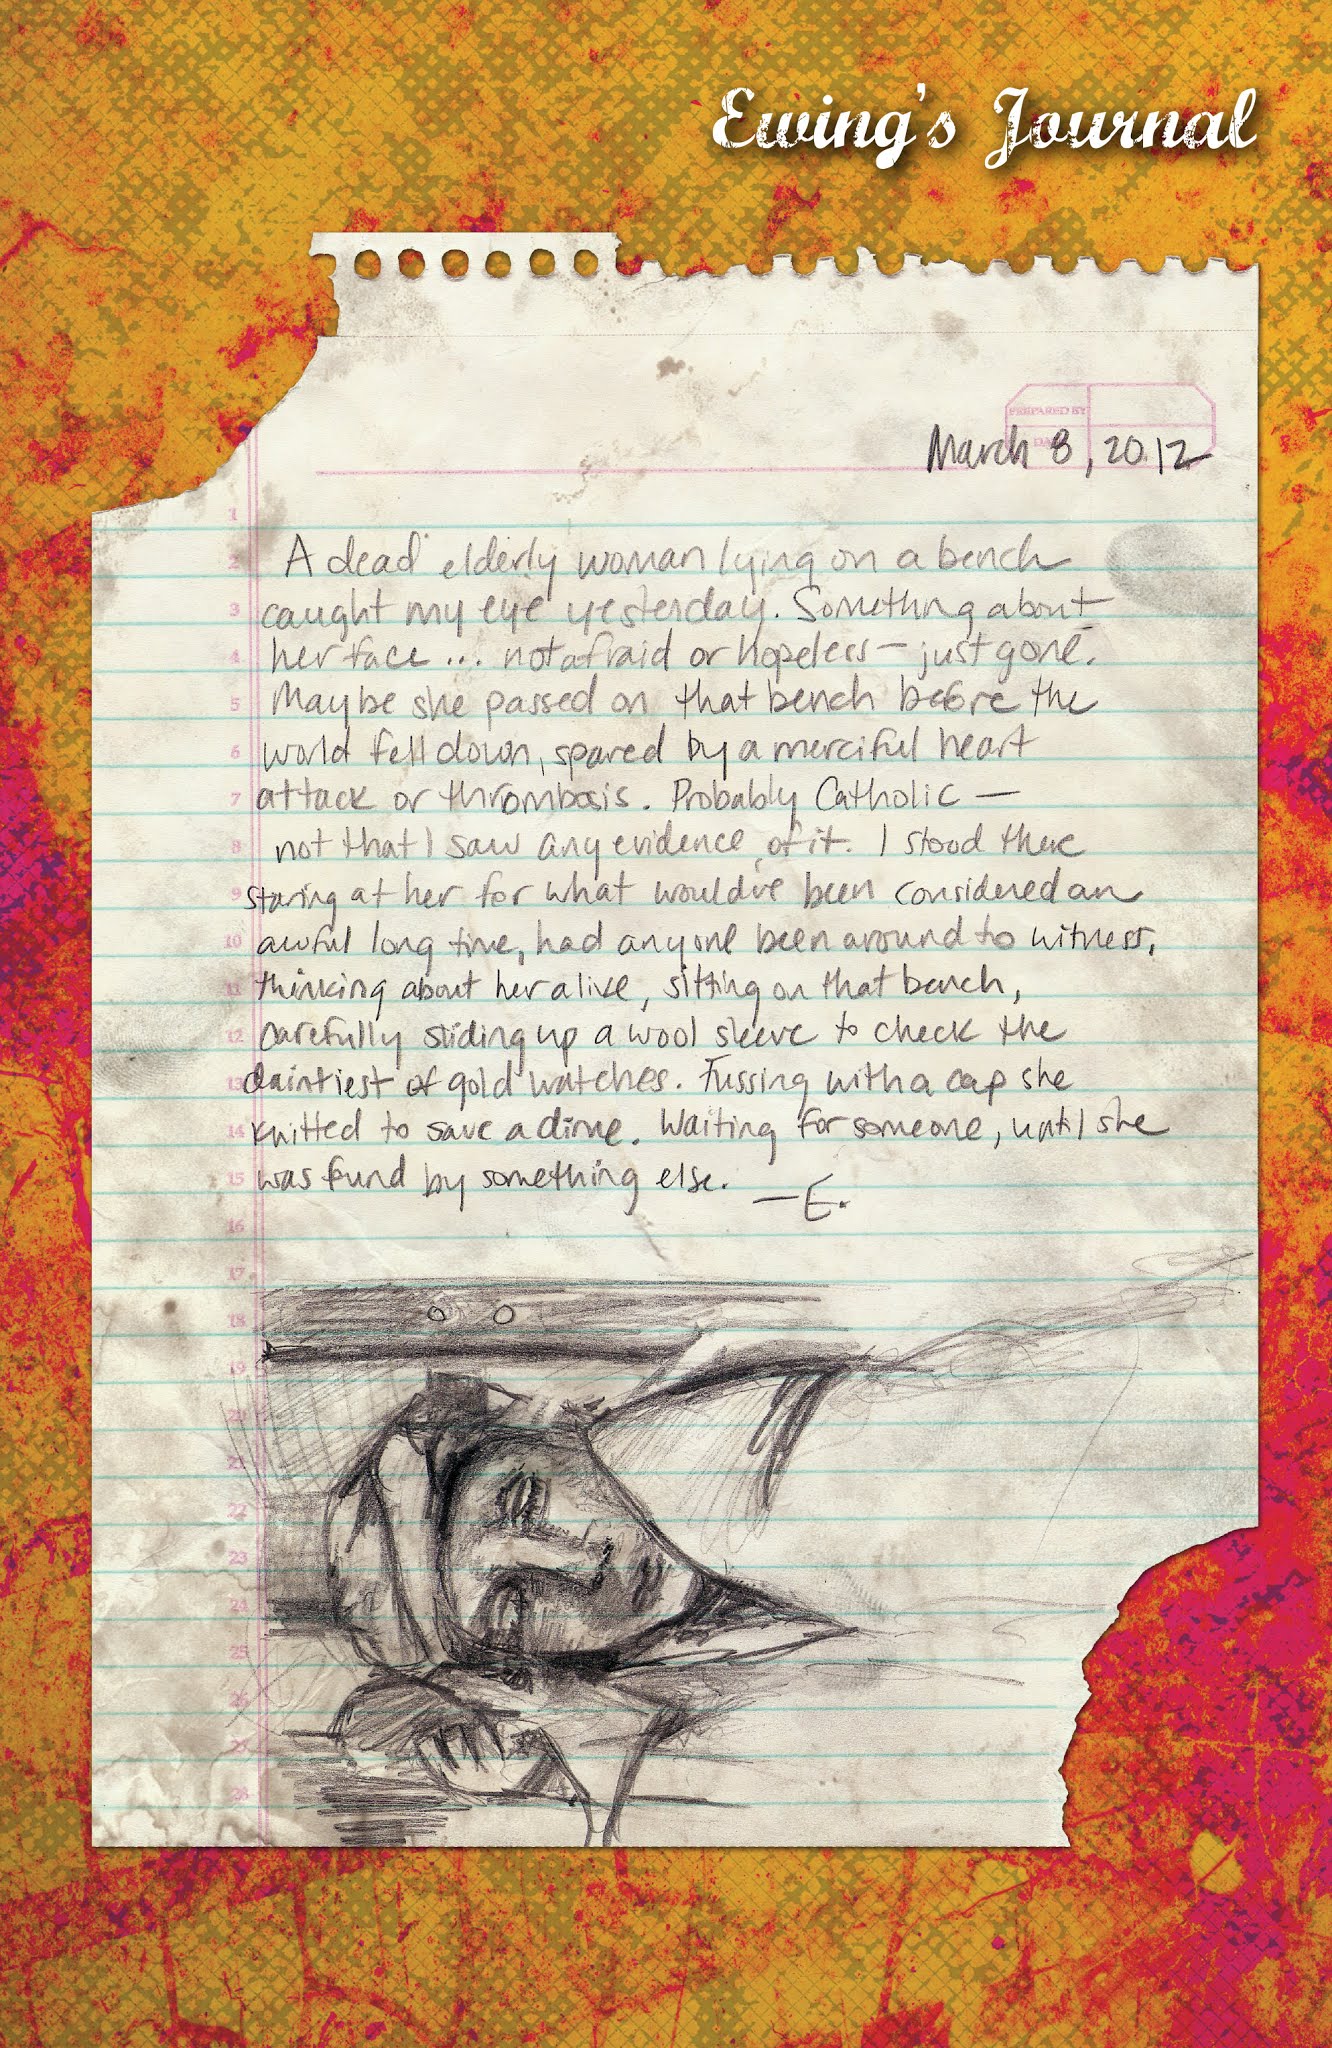 Ewing's Journal
PREPARED BY
March 8, 2012
1
2 A dead elderly woman lying on a bench
3 caught my eye yesterday. Something about
4 her face ... not afraid or hopeless — just gone.
5 Maybe she passed on that bench before the
6 world fell down, spared by a merciful heart
7 attack or thrombosis. Probably Catholic —
8 not that I saw any evidence of it. I stood there
9 staring at her for what would've been considered an
10 awful long time, had anyone been around to witness,
11 thinking about her alive, sitting on that bench,
12 carefully sliding up a wool sleeve to check the
13 daintiest of gold watches. Fussing with a cap she
14 knitted to save a dime. Waiting for someone, until she
15 was fund by something else. —E.
16
17
18
19
20
21
22
23
24
25
26
27
28